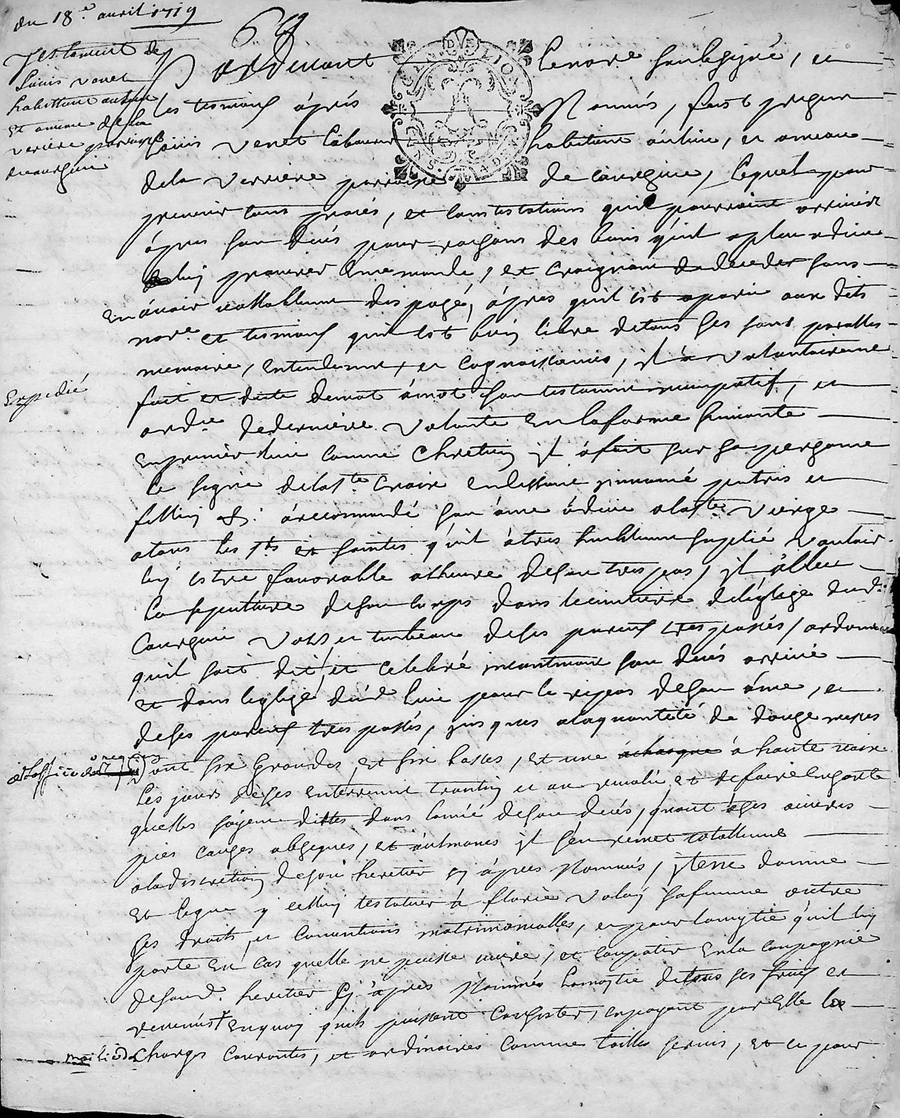 du 18e avril 1719
69
Testament de
Louis Venet
habittant au lieu
et ameau de la
Verriere parroisse
de courgine
Pardevant le nore soubsigné, et
les tesmoins après Nommés, fust present
Louis Venet laboureur habitant au lieu, et ameau
de la Verriere parroisse de courgine, lequel pour
prevenir tous procés, et contestations qui pourroint arriver
après son decés pour raisons des biens qu'il a plu a dieu
luy procurer en ce monde, et craignant de deceder sans
en avoir vallablement disposé, après qu'il est aparu aux dits
nore et tesmoins qu'il est bien libre de tous ses sens, parolles
memoire, entendement, et cognoissances, il a volontairement
Expedié
fait et dicté son testament nuncupatif, et
ordce de derniere volonté en la forme suivante
en premier lieu comme Chretien il a fait sur sa personne
le signe de la ste Croix en disant in nomine patris et
filii &c. a recommandé son ame a dieu a la ste Vierge
a tous les sts et saintes qu'il a tres humblement suplié vouloir
luy estre favorable a l'heure de son trespas, il a esleu
la sepulture de son corps dans le cimetiere de l'eglise dud.
Courgine au tombeau de ses parents trespassés, ordonne
qu'il soit dit, et celebré incontinent son decés arrivé
et dans l'eglise dud. lieu pour le repos de son ame, et
de ses parents trespassés, jusques a la quantité de douze messes
dont six grandes, et six basses, et une a haute voix
les jours de ses enterrement trantin et an revolu et de faire en sorte
qu'elles soyent dittes dans l'année de son decés, quant a ses oeuvres
pies causes obseques, et aulmones il s'en remet totallement
a la discretion de son heritier cy après Nommés, Item donne
et legue yceluy testateur à florie Valois sa femme outre
ses droits, et conventions matrimonialles, et pour l'amytié qu'il luy
porte en cas quelle ne puisse vivre, et compatir en la compagnie
de sond. heritier cy après Nommés la moytié de tous ses fruits et
revenus en quoy qu'ils puissent consister, en payant par elle les
Charges Courantes, et ordinaires comme tailles servis, et ce pour